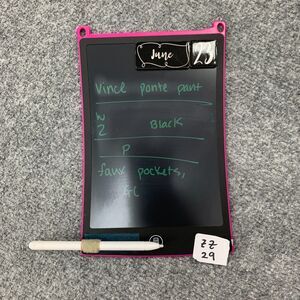 June 23
Vince ponte pant
2 Black
P
faux pockets,
ZZ
29